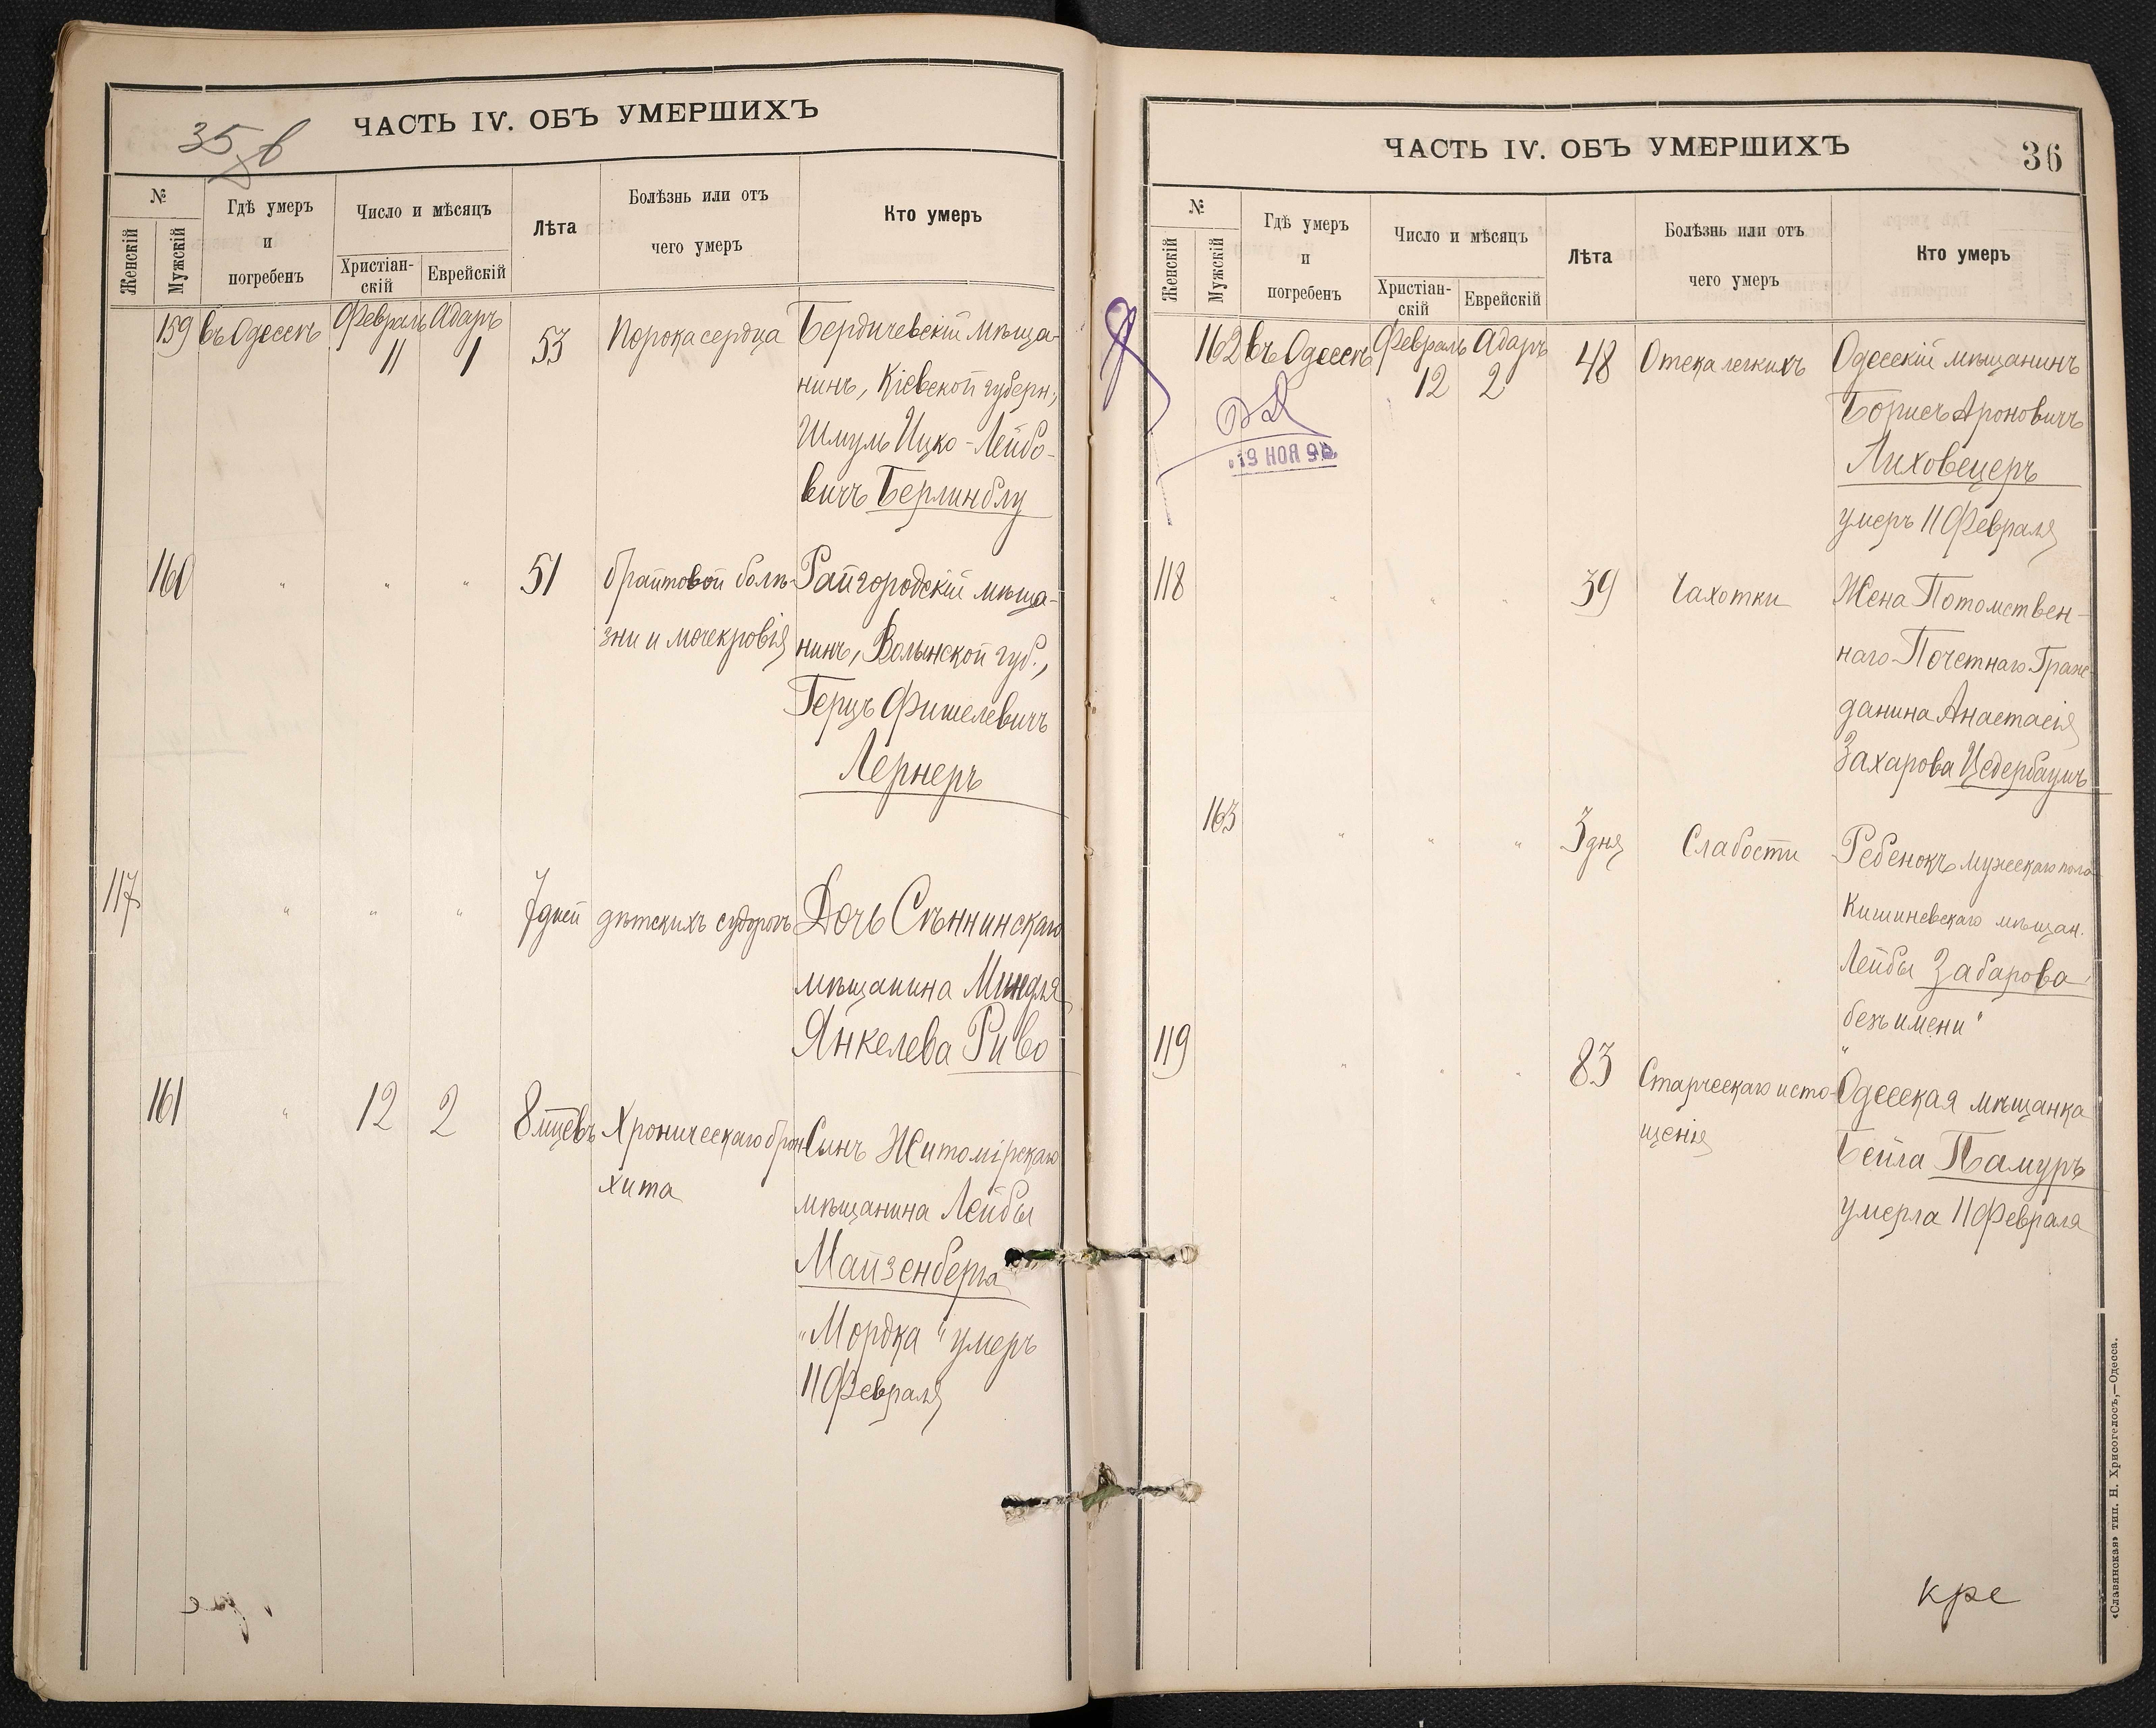 35 в
ЧАСТЬ IV. ОБЪ УМЕРШИХЪ
№
Женскій
Мужскій
Гдѣ умеръ
и
погребенъ
Число и мѣсяцъ
Христіан-
скій
Еврейскій
Лѣта
Болѣзнь или отъ
чего умеръ
Кто умеръ
159 въ Одессѣ Февраль Адаръ 53 Порока сердца Бердичевскій мѣща-
11 1
нинъ, Кіевской губерн.,
Шмуль Ицко-Лейбо-
вичъ Берлинблу
160 " " " 51 брайтовой болѣ- Райгородскій мѣща-
зни и мочекровія нинъ, Волынской губ.,
Герцъ Фишелевичъ
Лернеръ
117 " " " 7 дней дѣтскихъ судорогъ Дочь Сѣннинскаго
мѣщанина Миндля
Янкелева Риво
161 " 12 2 8 мцевъ Хроническаго брон- Сынъ Житомірскаго
хита мѣщанина Лейбы
Майзенберга
"Мордка" умеръ
11 Февраля
ЧАСТЬ IV. ОБЪ УМЕРШИХЪ
36
№
Женскій
Мужскій
Гдѣ умеръ
и
погребенъ
Число и мѣсяцъ
Христіан-
скій
Еврейскій
Лѣта
Болѣзнь или отъ
чего умеръ
Кто умеръ
162 въ Одессѣ Февраль Адаръ 48 Отека легкихъ Одесскій мѣщанинъ
12 2
Борисъ Ароновичъ
Лиховецеръ
умеръ 11 Февраля
19 НОЯ
118 " " " 39 Чахотки Жена Потомствен-
наго Почетнаго Граж-
данина Анастасія
Захарова Цедербаумъ
163 " " " 3 дня Слабости Ребенокъ мужескаго пола
Кишиневскаго мѣщан.
Лейбы Забарова
безъ имени"
119 " " " 83 Старческаго исто- Одесская мѣщанка
щенія Бейла Памуръ
умерла 11 Февраля
кре
«Славянская» тип. Н. Хрисогелосъ,—Одесса.